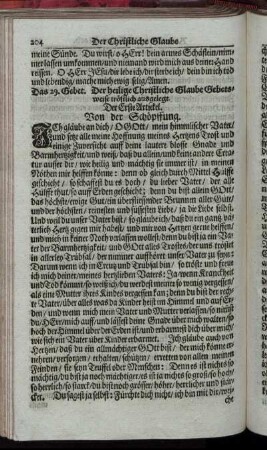 204 Der Christliche Glaube
meine Sünde. Du wirst / o HErr! dein armes Schäflein / nim-
mer lassen umkommen / und niemand wird mich aus deiner Hand
reissen. O HErr JEsu / dir lebe ich / dir sterbe ich / dein bin ich tod
und lebendig / mache mich ewig selig / Amen.
Das 29. Gebet. Der heilige Christliche Glaube Gebets-
weise tröstlich ausgelegt.
Der Erste Articel.
Von der Schöpffung.
ICh gläube an dich / O GOtt / mein himmlischer Vater /
und setze alle meine Hoffnung meines Hertzens Trost und
einige Zuversicht auff deine lautere blosse Gnade und
Barmhertzigkeit / und weiß / daß du allein / und keine andere Crea-
tur ausser dir / wie heilig und mächtig sie immer ist / in meinen
Nöthen mir helffen könne: denn ob gleich durch Mittel Hülffe
geschicht / so schaffst du es doch / du lieber Vater / der alle
Hülffe thut / so auff Erden geschicht; denn du bist allein GOtt /
das höchste / ewige Gut / ein überfliessender Brunnen aller Güte /
und der höchsten / reinesten und süssesten Liebe / ja die Liebe selbst.
Und weil du unser Vater bist / so gläube ich / daß du ein gantz vä-
terlich Hertz gegen mir habest / und mir von Hertzen gerne helffen /
und mich in keiner Noth verlassen wollest; denn du bist ja ein Va-
ter der Barmhertzigkeit / und GOtt alles Trostes / der uns tröstet
in allerley Trübsal / der nimmer auffhöret unser Vater zu seyn;
Darum wenn ich im Creutz und Trübsal bin / so tröste und freue
ich mich deiner / meines herzlieben Vaters: Ja / wenn Kranckheit
und Tod kömmt / so weiß ich / du werdest so wenig mein vergessen /
als eine Mutter ihres Kindes vergessen kan; denn du bist der rech-
te Vater / über alles was da Kinder heist im Himmel und auf Er-
den / und wenn mich mein Vater und Mutter verlassen / so nimst
du / HErr / mich auff / und lässest deine Gnade über mich walten / so
hoch der Himmel über der Erden ist / und erbarmest dich über mich /
wie sich ein Vater über Kinder erbarmet. Ich gläube auch von
Hertzen / daß du ein allmächtiger GOtt bist / der mich könne er-
nehren / versorgen / erhalten / schützen / erretten von allen meinen
Feinden / sie seyn Teuffel oder Menschen: Denn es ist nichts so
mächtig / du bist ja noch mächtiger / es ist ja nichts so groß / so hoch /
so herrlich / so starck / du bist noch grösser / höher / herrlicher und stär-
cker. Du sagest ja selbst: Fürchte dich nicht / ich bin mit dir / wei-
che